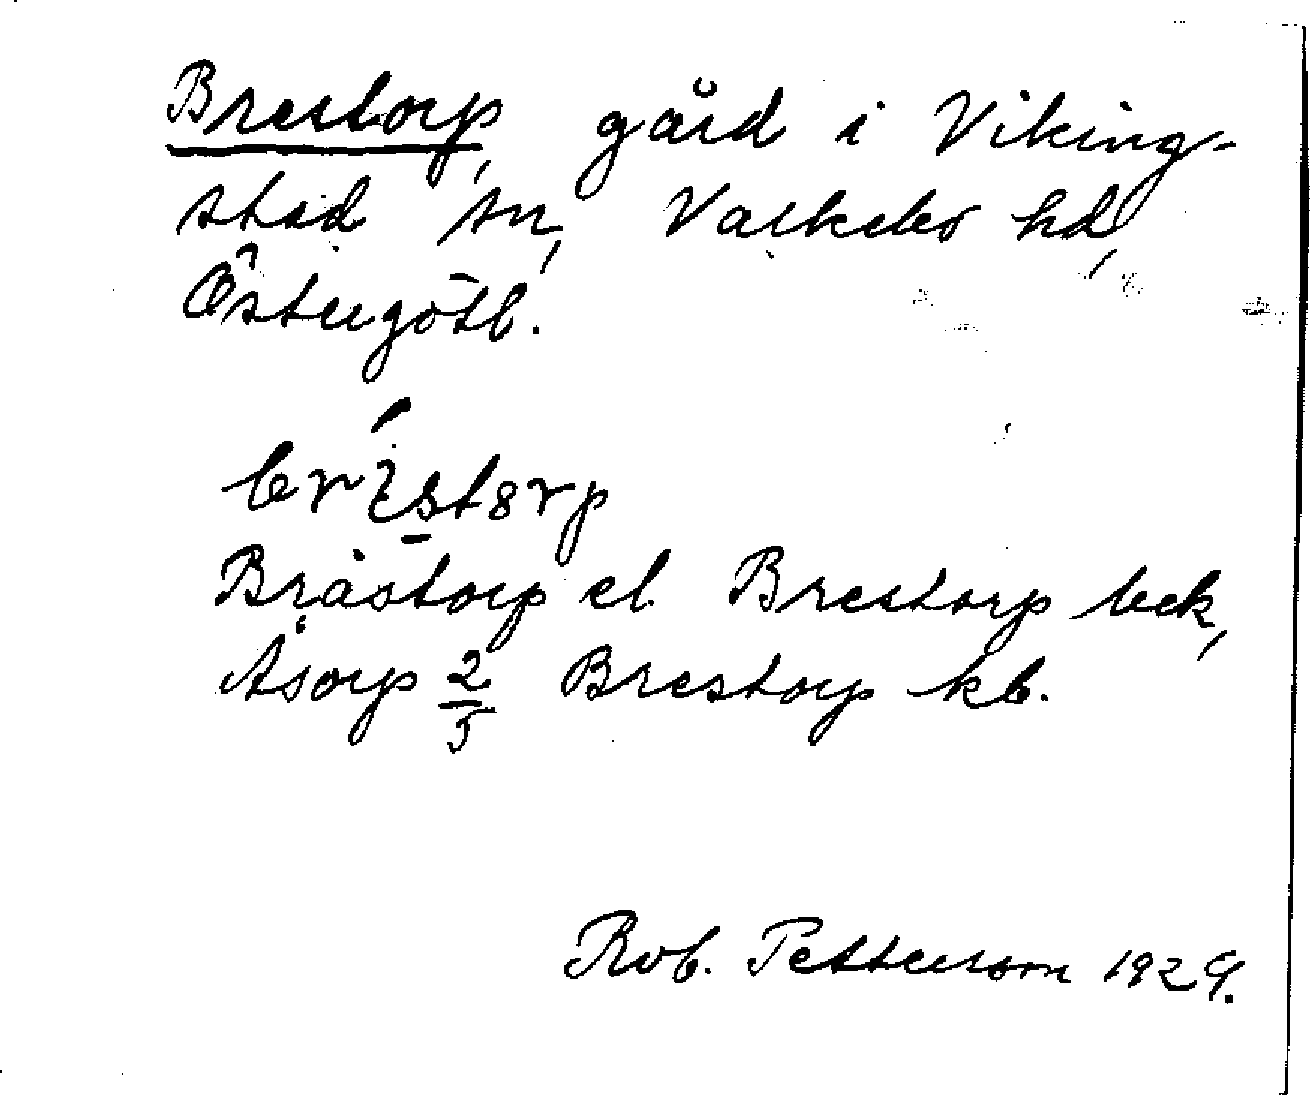 Brestorp, gård i Viking-
stad sn, Valkebo hd,
Östergötl.
Bråstorp el. Brestorp bek,
Åsorp 2/5 Brestorp kb.
Rob. Petterson 1929.